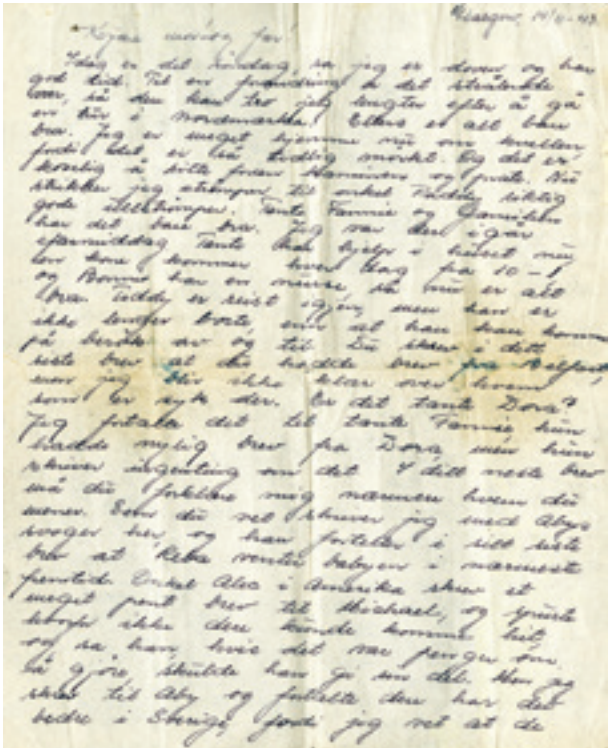 Glasgow, 14/11-43.
Kjære mor og far!
Idag er det søndag, så jeg er doven og har
god tid. Til en forandring er det strålende
vær, så dere kan tro jeg lengter efter å gå
en tur i Nordmarka. Ellers er alt bare
bra. Jeg er meget hjemme nu om kvelden
fordi det er så tidlig mørkt. Og det er
koselig å sitte foran kaminen og prate. Nu
strikker jeg strømper til onkel Paddy, riktig
gode ullstrømper. Tante Fannie og
har det bare bra. Jeg var der igår
eftermiddag. Tante har hjelp i huset nu,
en kone kommer hver dag fra 10-1
og Bonnie har en nurse så nu er alt
bra. Teddy er reist igjen, men han er
ikke lenger borte, enn at han kan komme
på besøk av og til. Du skrev i ditt
siste brev at du hadde brev fra Belfast,
men jeg blir ikke klar over hvem
som er syk der. Er det tante Dora?
Jeg fortalte det til tante Fannie, hun
hadde nylig brev fra Dora, men hun
skriver ingenting om det. I ditt neste brev
må du forklare mig nærmere hvem du
mener. Som du vet skriver jeg med Abys
svoger her, og han forteller i sitt siste
brev at Reba venter babyen i nærmeste
fremtid. Onkel Alec i Amerika skrev et
meget pent brev til Michael, og spurte
hvorfor ikke dere kunde komme hit,
og sa han, hvis det var penger om
å gjøre, skulde han gi en del. Men jeg
skrev til Aby og fortalte dere har det
bedre i Sverige, fordi jeg vet at de